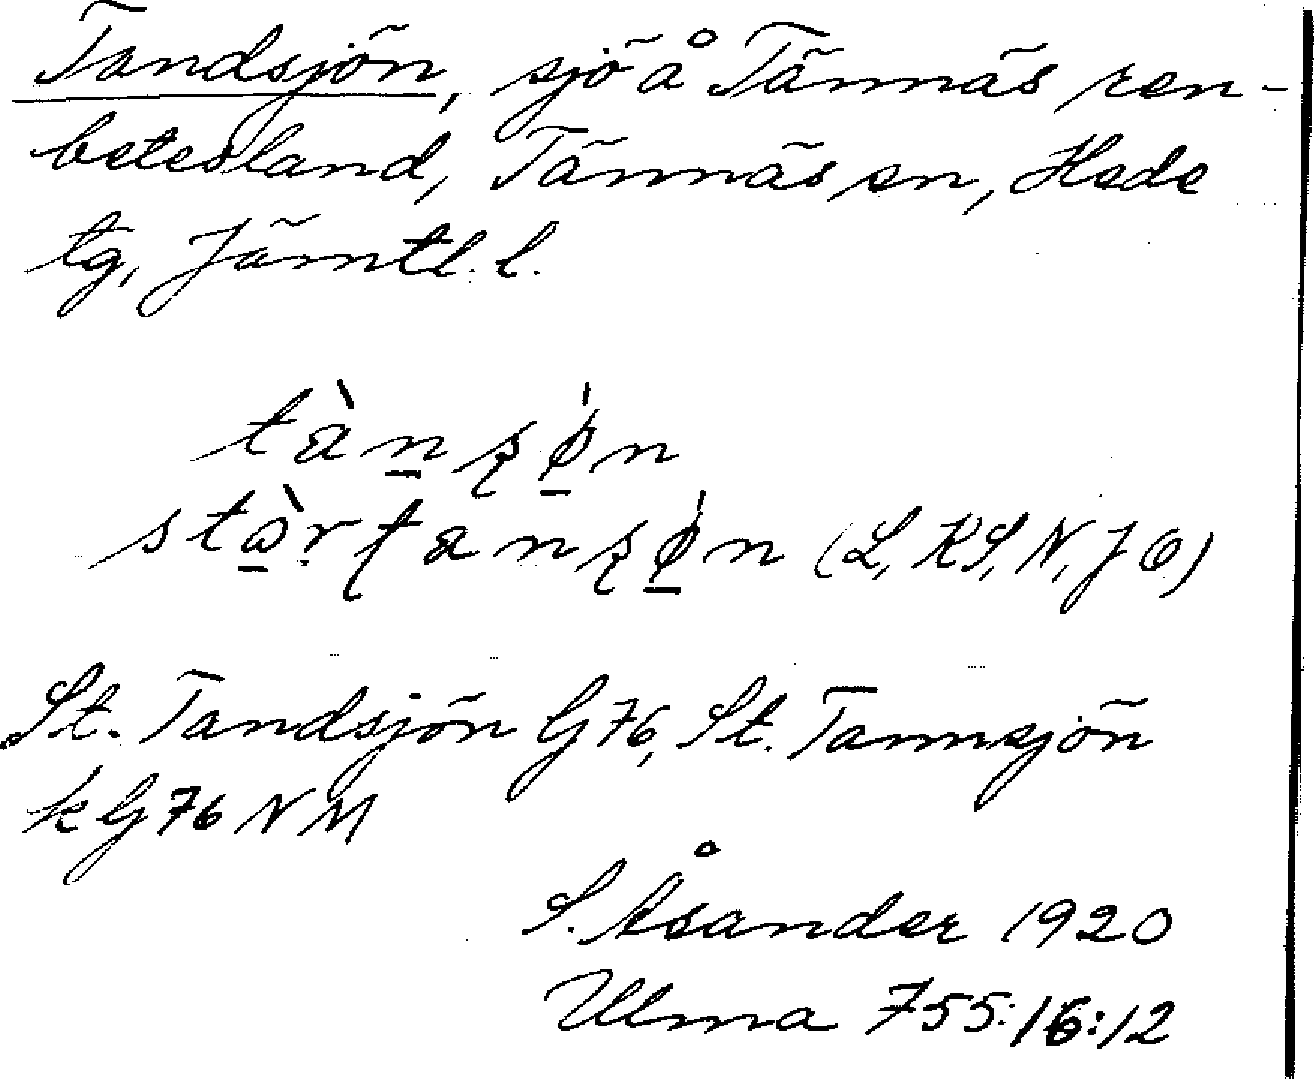 Tandsjön, sjö å Tännäs ren-
betesland, Tännäs sn, Hede
tg, Jämtl. l.
tàn̲ʂǿ̲n
stɷ̲̀rʈanʂǿ̲n (L, KS, N, JO)
St. Tandsjön G76, St. Tannsjön
kG76 NM
S. Åsander 1920
Ulma 755:16:12